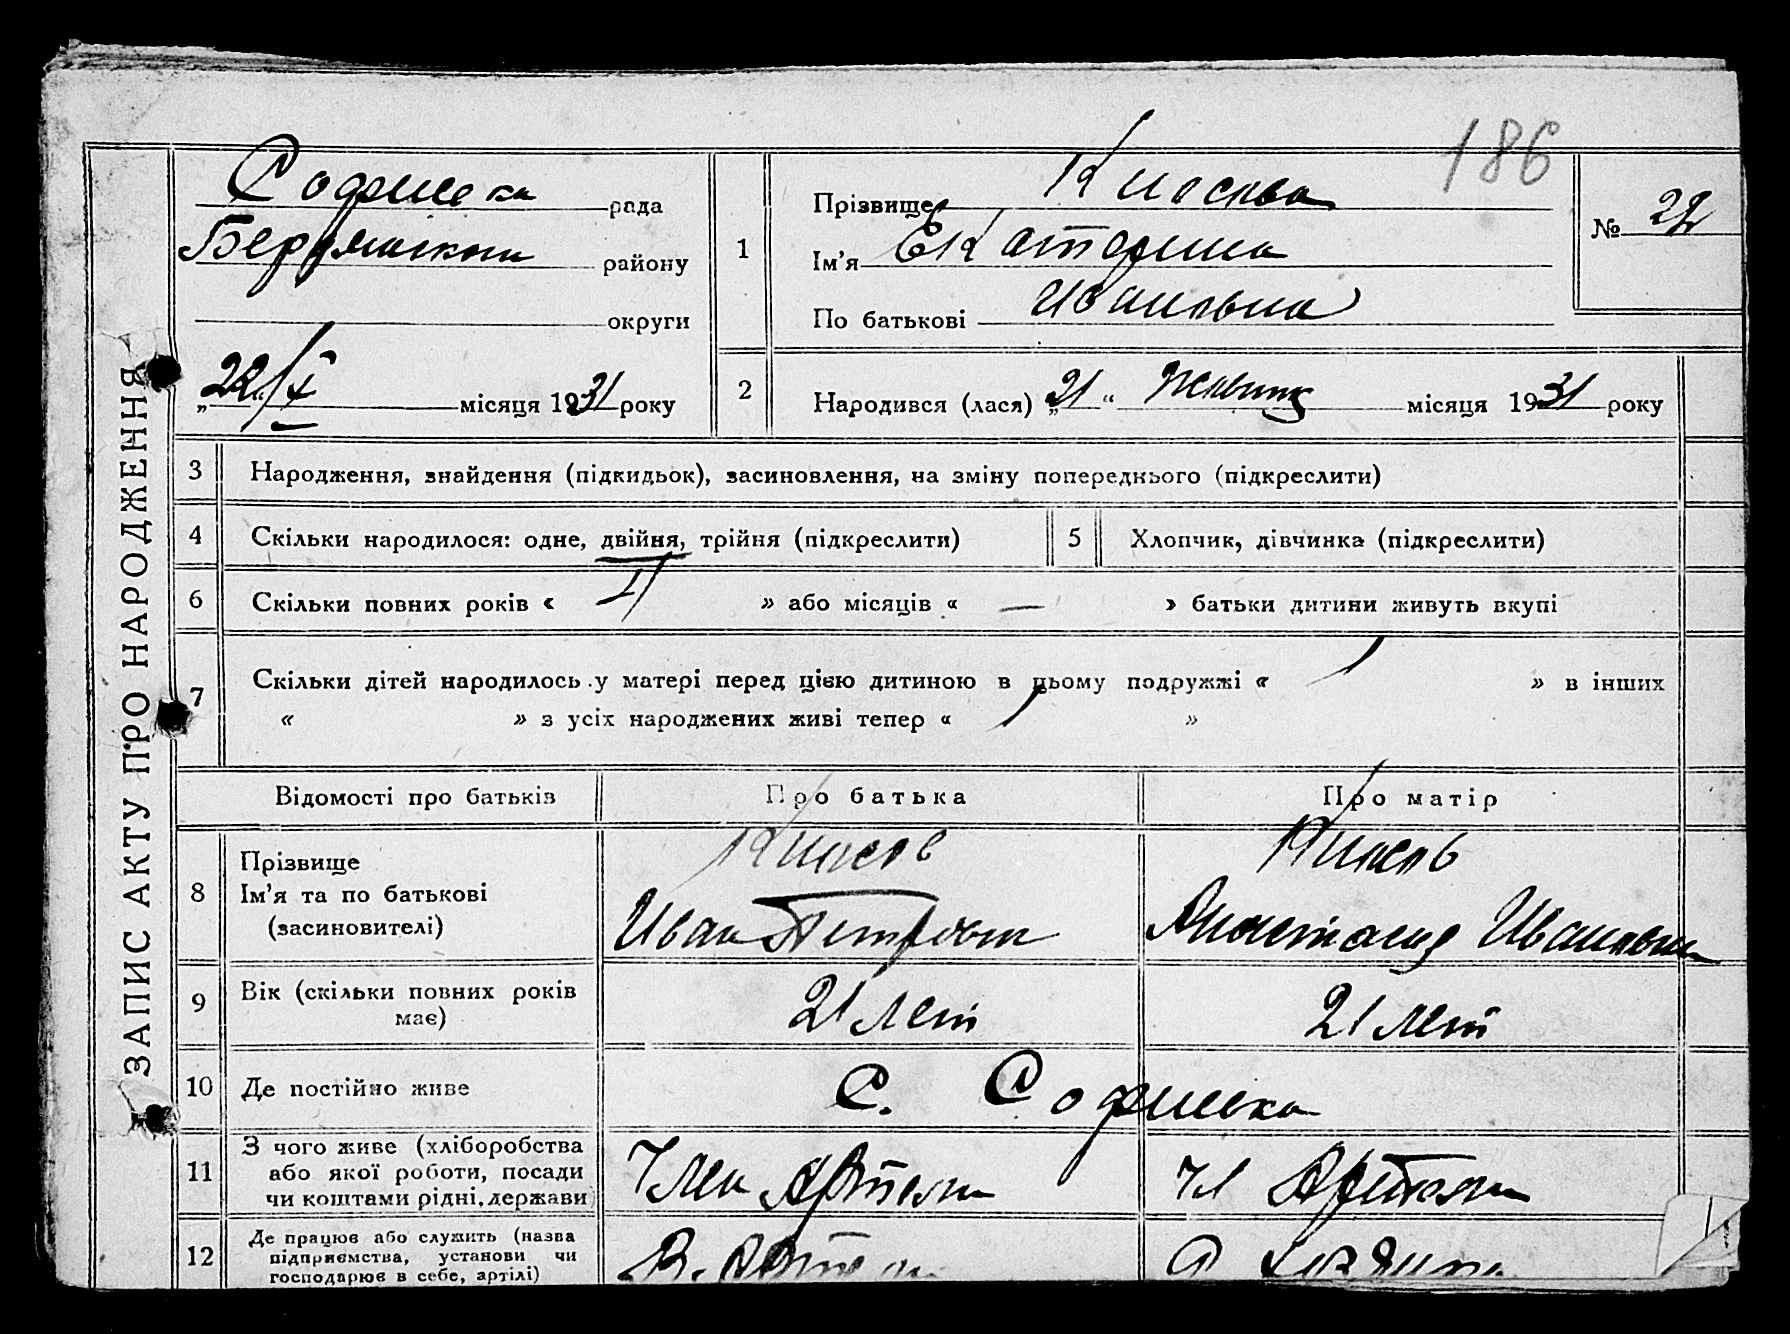 186
ЗАПИС АКТУ ПРО НАРОДЖЕННЯ
Софиевка рада
Бердянского району
округи
„22“/X місяця 1931 року
1
Прізвище
Ім’я Екатерина
По батькові Ивановна
№ 22
2
Народився (лася) „21“ Жовтня місяця 1931 року
3 Народження, знайдення (підкидьок), засиновлення, на зміну попереднього (підкреслити)
4 Скільки народилося: одне, двійня, трійня (підкреслити)
5 Хлопчик, дівчинка (підкреслити)
6 Скільки повних років « II » або місяців « — » батьки дитини живуть вкупі
7 Скільки дітей народилось у матері перед цією дитиною в цьому подружжі « 1 » в інших
« » з усіх народжених живі тепер « 1 »
Відомості про батьків Про батька Про матір
8 Прізвище
Ім’я та по батькові
(засиновителі)
Иван Петрович
Анастасия Ивановна
9 Вік (скільки повних років
має)
21 лет
21 лет
10 Де постійно живе
С. Софиевка
11 З чого живе (хліборобства
або якої роботи, посади
чи коштами рідні, держави
Член Артели
Чл Артели
12 Де працює або служить (назва
підприємства, установи чи
господарює в себе, артілі)
В. Артели